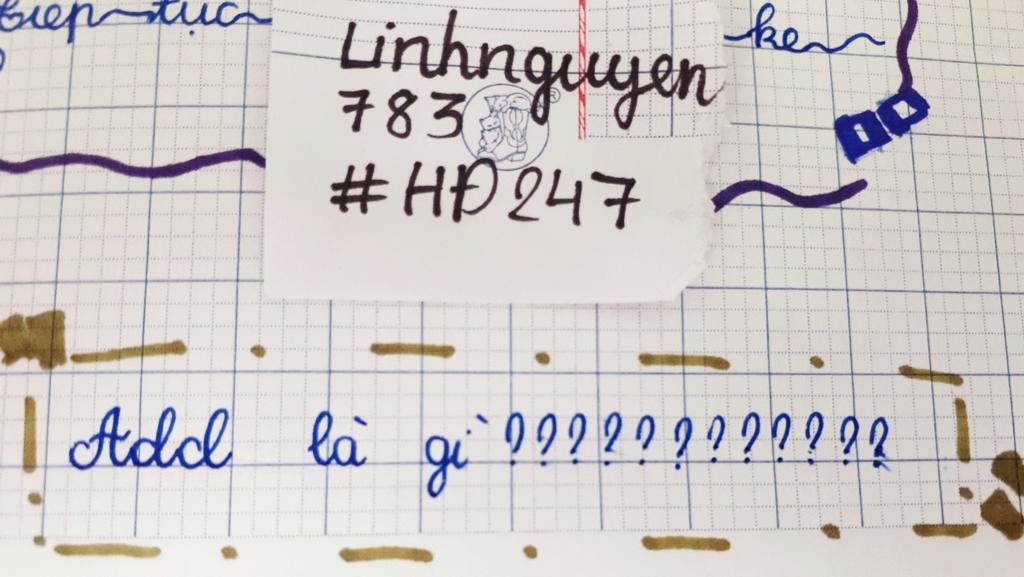 tiếp tục
ke
Linhnguyen
783
#HĐ247
Add là gì ????????????